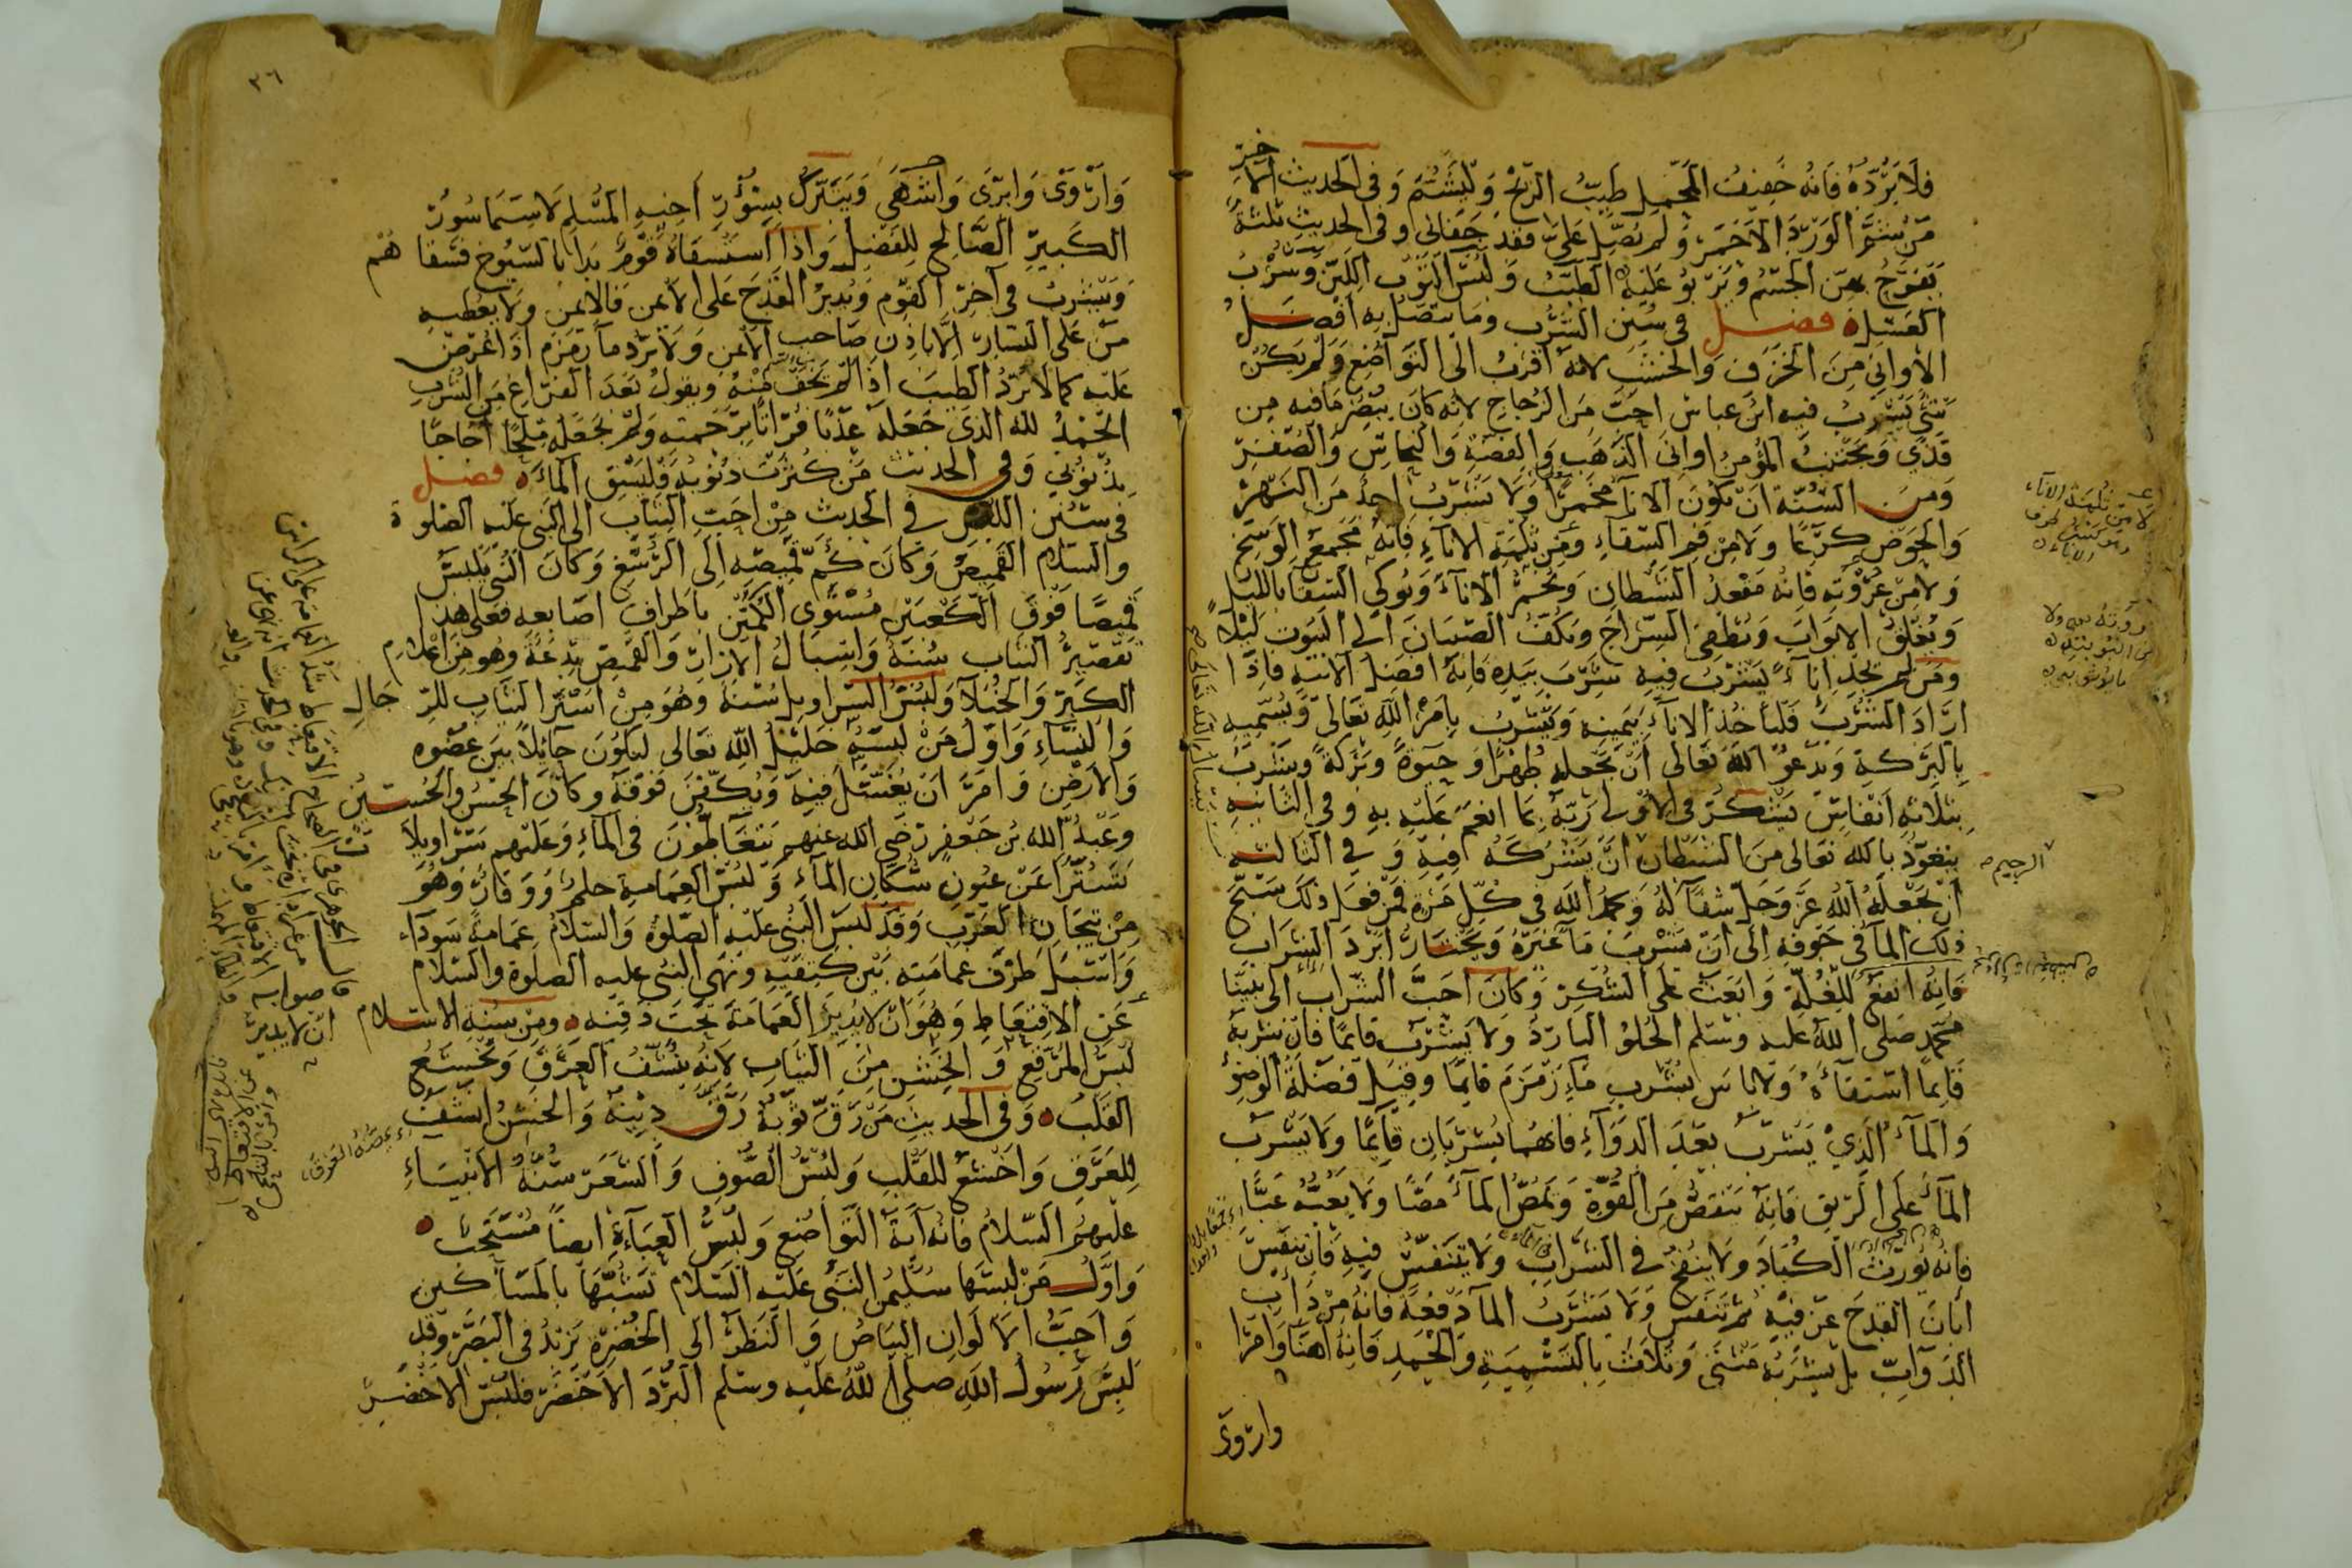 فلا يردّه فانه خفيف المحمل طيب الريح وليشتم وفى الحديث الآخر
من شمّ الورد الاحمر ولم يصلّ علىّ فقد جفانى وفى الحديث ثلثة
يفرح بهن الجسم ويربو عليه الطيب ولبس الثوب اللين وشرب
العسل فصل فى سنن الشرب وما يتصل به افضل
الاوانى من الخزف والخشب لانه اقرب الى التواضع ولم يكن
شئ يشرب فيه ابن عباس احب من الزجاج لانه كان يبصر ما فيه من
قذى ويجتنب المؤمن اوانى الذهب والفضة والنحاس والصفر
ومن السنة ان يكون الاناء مخمرا ولا يشرب احد من النهر
والحوض كرعا ولا من فم السقاء ومن ثلمة الاناء فانه مجمع الوسخ
ولا من عروته فانه مقعد الشيطان ويخمر الاناء ويوكى السقا بالليل
ويغلق الابواب ويطفئ السراج ويكف الصبيان الى البيوت ليلا
ومن لم يجد اناء يشرب فيه شرب بيده فانه افضل الانية فاذا
اراد الشرب فليأخذ الاناء بيمينه ويشرب بامر الله تعالى ويسميه
بالبركة ويدعو الله تعالى ان يجعله طهرا وحيوة وبركة ويشرب
بثلاثة انفاس يشكر فى الاولى ربه بما انعم عليه به وفى الثانية
يتعوذ بالله تعالى من الشيطان ان يشركه فيه وفى الثالثة
الرجيم
ان يجعله الله عز وجل شفاء له ويحمد الله فى كل مرة فمن فعل ذلك سبّح
ذلك الماء فى جوفه الى ان يشرب ماء غيره ويختار ابرد الشراب
فانه انفع للغلة وابعث على الشكر وكان احب الشراب الى نبينا
محمد صلى الله عليه وسلم الحلو البارد ولا يشرب قايما فان شربه
قايما استقاءه ولا باس بشرب ماء زمزم قايما وقيل فضلة الوضؤ
والماء الذى يشرب بعد الدواء فانهما يشربان قايما ولا يشرب
الماء على الريق فانه ينقص من القوة ويمص الماء مصا ولا يعبه عبا
فانه يورث الكباد ولا ينفخ فى الشراب ولا يتنفس فيه فان تنفس
ابان القدح عن فيه ثم تنفس ولا يشرب الما دفعة فانه من دأب
الدواب بل يشربه مثنى وثلاث بالتسمية والحمد فانه اهنا وامرا
واروى
٣٦
واروى وابرى واشهى ويتبرك بسؤر اخيه المسلم لا سيما سور
الكبير الصالح للفضل واذا استسقاه قوم بدا بالشيوخ فسقاهم
ويشرب فى آخر القوم ويدير القدح على الايمن فالايمن ولا يعطيه
من على اليسار الا باذن صاحب الايمن ولا يرد ماء زمزم اذا عرض
عليه كما لا يرد الطيب اذا لم يخف منه ويقول بعد الفراغ من الشرب
الحمد لله الذى جعله عذبا فراتا برحمته ولم يجعله ملحا اجاجا
بذنوبى وفى الحديث من كثرت ذنوبه فليسق الماء فصل
فى سنن اللبس فى الحديث من احب الثياب الى النبى عليه الصلوة
والسلام القميص وكان كم قميصه الى الرسغ وكان النبى يلبس
قميصا فوق الكعبين مستوى الكمين باطراف اصابعه فعلى هذا
تقصير الثياب سنة واسبال الازار والقميص بدعة وهو من اعلام
الكبر والخيلاء ولبس السراويل سنة وهو من استر الثياب للرجال
والنساء واول من لبسه خليل الله تعالى ليكون حائلا بين عضوه
والارض وامر ان يغسل فيه ويكفن فوقه وكان الحسن والحسين
وعبد الله بن جعفر رضى الله عنهم يتغاطون فى الماء وعليهم سراويلات
تسترا عن عيون سكان الماء ولبس العمامة حلم ووقار وهو
من تيجان العرب وقد لبس النبى عليه الصلوة والسلام عمامة سوداء
واسبل طرف عمامته بين كتفيه ونهى النبى عليه الصلوة والسلام
عن الاقتعاط وهو ان لا يدير العمامة تحت ذقنه ومن سنة الاسلام
لبس المرقع والخشن من الثياب لانه ينشف العرق ويخشع
القلب وفى الحديث من رق ثوبه رق دينه والخشن انشف
للعرق واخشع للقلب ولبس الصوف والشعر سنة الانبياء
عليهم السلام فانه آية التواضع ولبس العباءة ايضا مستحب
واول من لبسها سليمن النبى عليه السلام تشبها بالمساكين
واحب الالوان البياض والنظر الى الخضرة يزيد فى البصر وقد
لبس رسول الله صلى الله عليه وسلم البرد الاخضر فلبس الاخضر